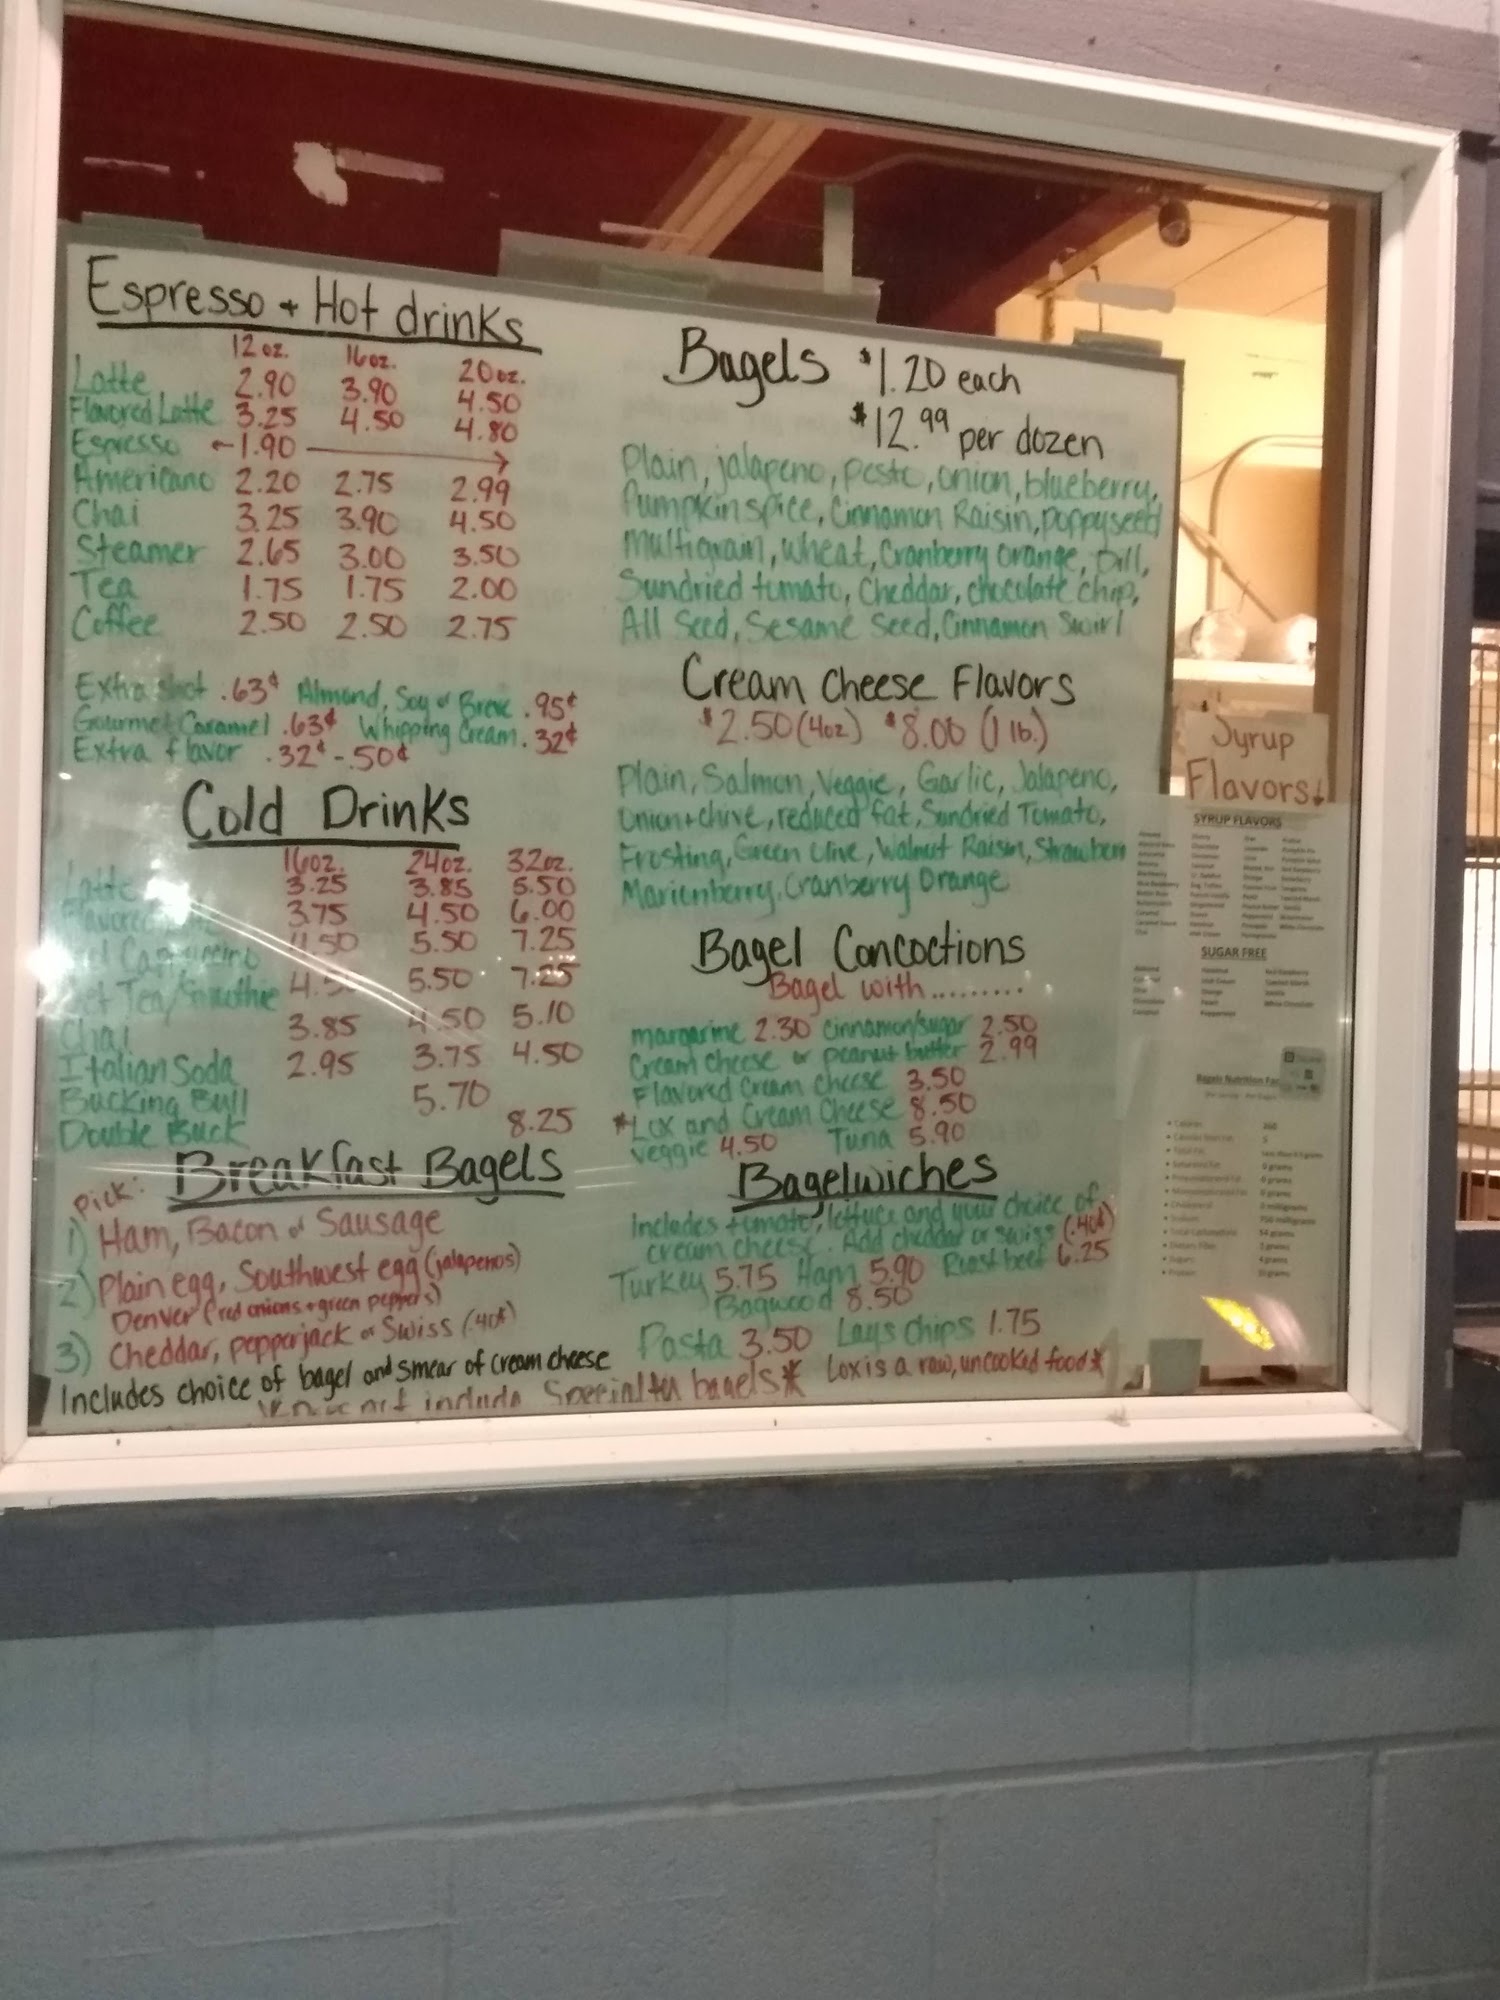 Espresso + Hot drinks
12 oz. 16oz. 20oz.
Latte 2.90 3.90 4.50
Flavored Latte 3.25 4.50 4.80
Espresso ←1.90 →
Americano 2.20 2.75 2.99
Chai 3.25 3.90 4.50
Steamer 2.65 3.00 3.50
Tea 1.75 1.75 2.00
Coffee 2.50 2.50 2.75
Extra shot .63¢ Almond, Soy or Breve .95¢
Gourmet Caramel .63¢ Whipping Cream .32¢
Extra flavor .32¢-.50¢
Cold Drinks
16oz. 24oz. 32oz.
Latte 3.25 3.85 5.50
Flavored 3.75 4.50 6.00
Cappuccino 4.50 5.50 7.25
Tea/Smoothie 4.50 5.50 7.25
Chai 3.85 4.50 5.10
Italian Soda 2.95 3.75 4.50
Bucking Bull 5.70
Double Buck 8.25
Breakfast Bagels
Pick:
1) Ham, Bacon or Sausage
2) Plain egg, Southwest egg (jalapenos)
Denver (red onions + green peppers)
3) Cheddar, pepperjack or Swiss (.40¢)
Includes choice of bagel and smear of cream cheese
include Specialty bagels*
Bagels $1.20 each
$12.99 per dozen
Plain, jalapeno, pesto, onion, blueberry,
Pumpkin spice, Cinnamon Raisin, poppyseed
multigrain, wheat, Cranberry orange, Dill,
Sundried tomato, Cheddar, chocolate chip,
All Seed, Sesame Seed, Cinnamon Swirl
Cream Cheese Flavors
$2.50 (4oz) $8.00 (1 lb.)
Plain, Salmon, Veggie, Garlic, Jalapeno,
onion + chive, reduced fat, Sundried Tomato,
Frosting, Green Olive, Walnut Raisin, Strawberr
Marionberry, Cranberry Orange
Bagel Concoctions
Bagel with.........
margarine 2.30 cinnamon/sugar 2.50
Cream cheese or peanut butter 2.99
Flavored Cream cheese 3.50
*Lox and Cream Cheese 8.50
Veggie 4.50 Tuna 5.90
Bagelwiches
Includes tomato, lettuce and your choice of
cream cheese. Add cheddar or swiss (.40¢)
Turkey 5.75 Ham 5.90 Roast beef 6.25
Bagwood 8.50
Pasta 3.50 Lays chips 1.75
Lox is a raw, uncooked food*
Syrup
Flavors↓
SYRUP FLAVORS
SUGAR FREE
Bagels Nutrition